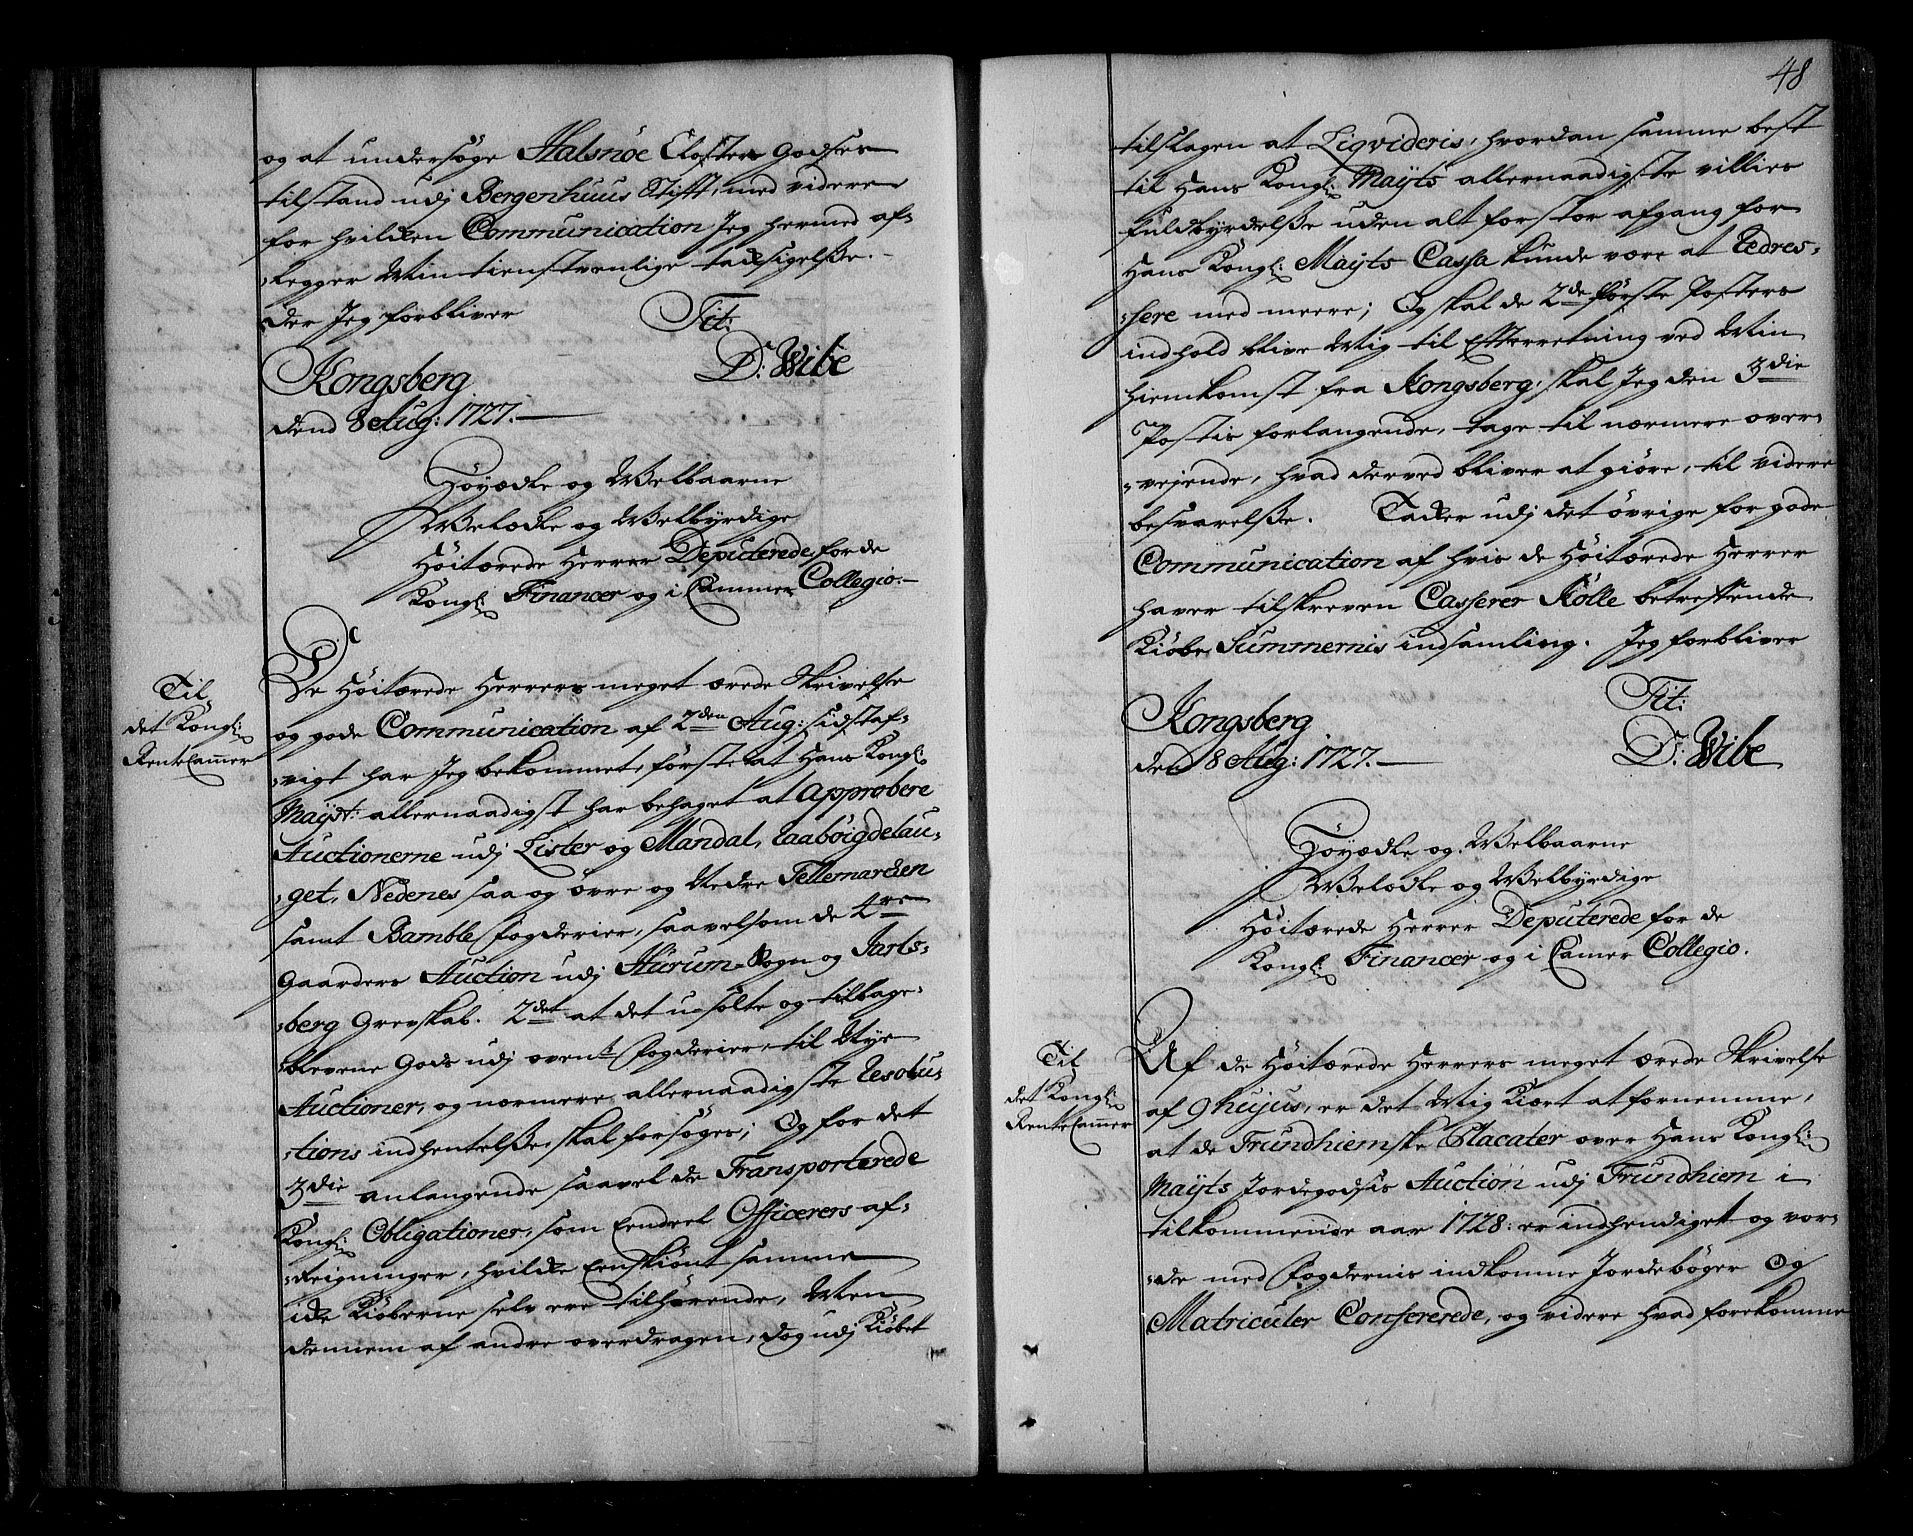 og at undersøge Halsnøe Closters Godses
tilstand udj Bergenhuus Stift, med videre
for hvilken Communication Jeg hermed af-
-legger Min tienstvenlige tacksigelsse.
der Jeg forbliver
Tit:
D: Wibe
Kongsberg
dend 8 Aug: 1727.
Høyædle og Welbaarne
Welædle og Welbyrdige
Høitærede Herrer Deputerede for de
Kongl: Financer og i Cammer Collegio.
Til
det Kongl:
RenteCammer
De Høitærede Herrers meget ærede Skrivelse
og gode Communication af 2den Aug: sidstaf-
-vigt har Jeg bekommet, første at Hans Kongl:
Mayst: allernaadigst har behaget at Approbere
Auctionerne udj Lister og Mandal, Raabøigdelau-
-get, Nedenes saa og Øvre og Nedre Tellemarcken
samt Bamble Fogderier, saavelsom de 4re
Gaarders Auction udj Hurum Sogn og Jarls-
-berg Grevskab. 2det at det usolte og tilbage-
-blevne Gods udj ovent: Fogderier, til Nye
Auctioner, og nærmere allernaadigste Resolu-
-tions indhentelsse, skal forsøges; Og for det
3die anlangende saavel de Transporterede
Kongl: Obligationer, som Eendeel Officerers af-
-regninger, hvilke Eenskiønt samme
icke Kiøberne selv ere tilhørende, Men
dennem af andre overdragen, dog udj Kiøbet
48
tilslagen at Liqvideris, hvordan samme best
til Hans Kongl: Mayts allernaadigste villies
fuldbyrdelsse uden alt for stor afgang for
Hans Kongl: Mayts Cassa kunde være at Redres-
-sere med meere; Og skal de 2de første Posters
indhold blive Mig til Efterretning ved Min
hiemkomst fra Kongsberg, skal Jeg den 3die
Postis forlangende, tage til nærmere over-
-vejende, hvad derved bliver at giøre, til videre
besvarelsse. Tacker udj det øvrige for gode
Communication af hvis de Høitærede Herrer
haver tilskreven Casserer Kølle betreffende
Kiøbe Summernis indsamling. Jeg forbliver
Tit:
D: Wibe
Kongsberg
den 8 Aug: 1727.
Høyædle og Welbaarne
Welædle og Welbyrdige
Høitærede Herrer Deputerede for de
Kongl: Financer og i Camer Collegio.
Til
det Kongl:
RenteCammer
Af de Høitærede Herrers meget ærede Skrivelse
af 9 hujus, er det Mig Kiært at fornemme,
at de Trundhiemske Placater over Hans Kongl:
Mayts Jordegodsis Auction udj Trundhiem i
tilkommende aar 1728: er indhendiget og vor-
-de med Fogdernis indkomne Jordebøger Og
Matriculer Confererede, og videre hvad forekomme